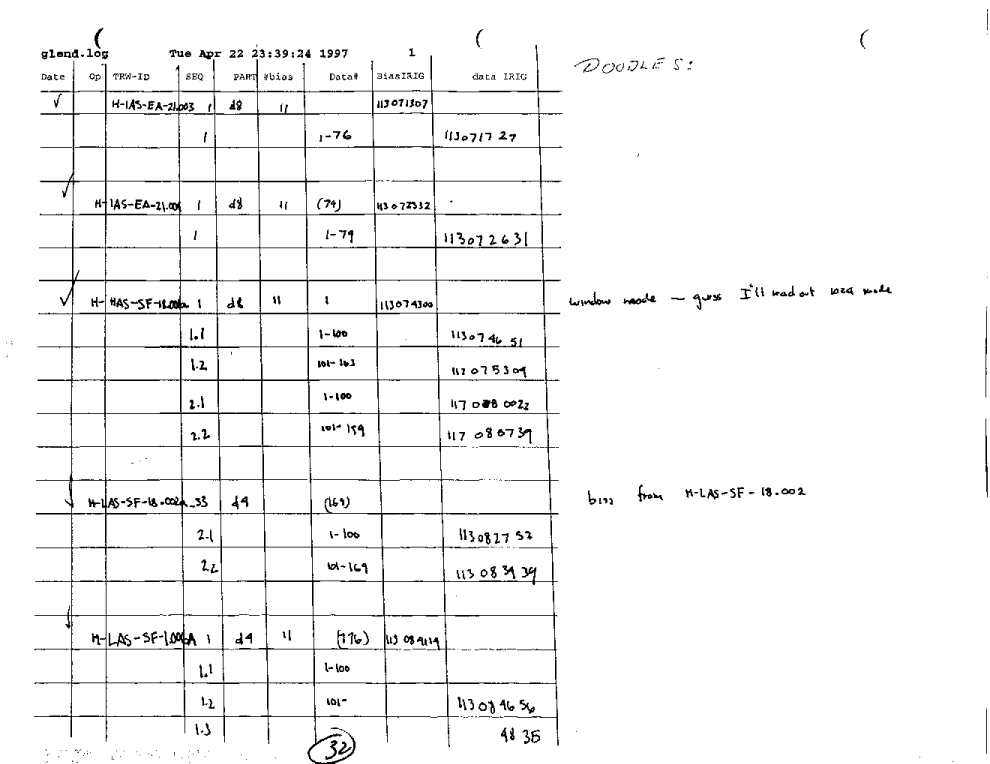 glend.log Tue Apr 22 23:39:24 1997 1
DOODLES:
Date Op TRW-ID SEQ PART #bias Data# BiasIRIG data IRIG
✓ H-IAS-EA-21.003 1 d8 11 113071307
1 1-76 113071727
✓ H-IAS-EA-21. 1 d8 11 (79) 113072332
1 1-79 113072631
✓ H-HAS-SF-18. 1 d8 11 1 113074300 window mode — guess I'll read out 1024 mode
1.1 1-100 113074651
1.2 101-163 113075309
2.1 1-100 0022
2.2 101-159 117 080739
H-LAS-SF-18.002A 33 d9 (169) bias from H-LAS-SF-18.002
2.1 1-100 113082752
2.2 101-169 113083939
H-LAS-SF- 1 d9 11 (176)
1.1 1-100
1.2 101- 113084656
1.3 4835
32